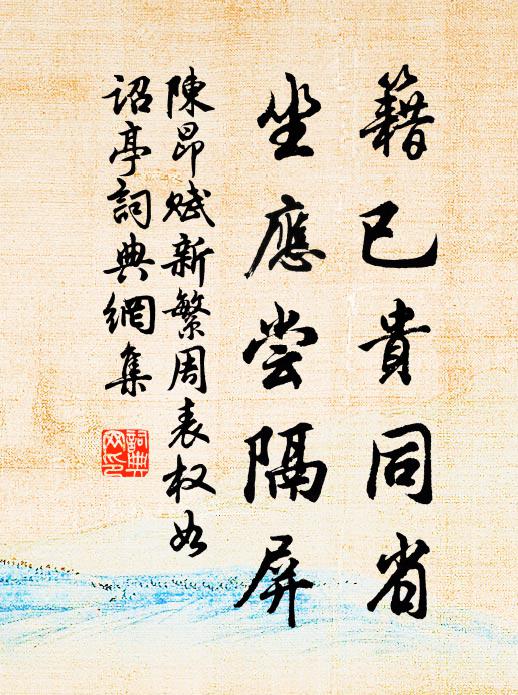 籍已貴同省
坐應尝隔屏
陳昂赋新繁周表权如
詔亭詞典網集
詞典
网印